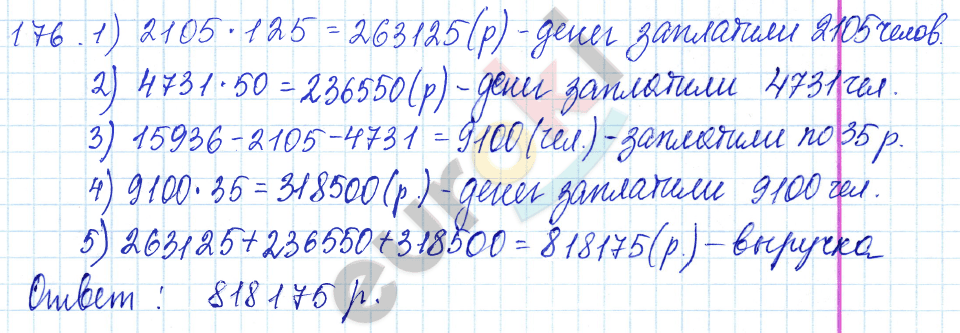 176. 1) 2105 · 125 = 263125 (р) - денег заплатили 2105 челов.
2) 4731 · 50 = 236550 (р) - денег заплатили 4731 чел.
3) 15936 - 2105 - 4731 = 9100 (чел.) - заплатили по 35 р.
4) 9100 · 35 = 318500 (р.) - денег заплатили 9100 чел.
5) 263125 + 236550 + 318500 = 818175 (р.) - выручка
Ответ : 818175 р.
euroki